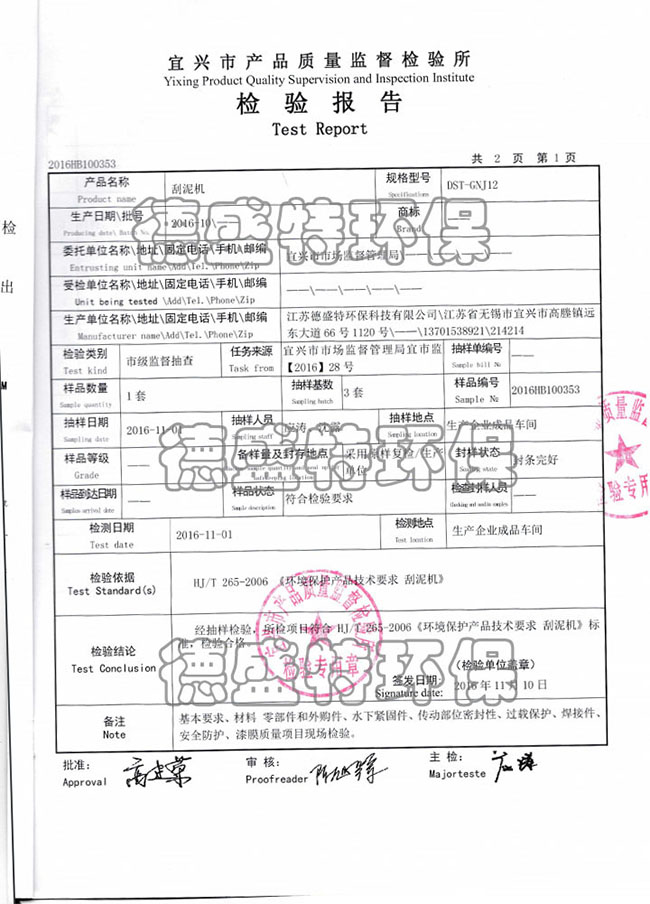 宜兴市产品质量监督检验所
Yixing Product Quality Supervision and Inspection Institute
检验报告
Test Report
2016HB100353 共 2 页 第 1 页
产品名称 刮泥机 规格型号 DST-GNJ12
Product name Specifications
生产日期\批号 2016-10\ 商标
Producing date\ Batch No. Brand
德盛特环保
委托单位名称\地址\固定电话\手机\邮编 宜兴市市场监督管理局\
Entrusting unit name\Add\Tel.\Phone\Zip
受检单位名称\地址\固定电话\手机\邮编 ——\——\——\——\——
Unit being tested \Add\Tel.\Phone\Zip
生产单位名称\地址\固定电话\手机\邮编 江苏德盛特环保科技有限公司\江苏省无锡市宜兴市高塍镇远
Manufacturer name\Add\Tel.\Phone\Zip 东大道 66 号 1120 号\——\13701538921\214214
检验类别 市级监督抽查 任务来源 宜兴市市场监督管理局宜市监 抽样单编号 ——
Test kind Task from 【2016】28 号 Sample bill №
样品数量 1 套 抽样基数 3 套 样品编号 2016HB100353
Sample quantity Sampling batch Sample №
抽样日期 2016-11-01 抽样人员 抽样地点 生产企业成品车间
Sampling date Sampling staff Sampling location
德盛特环保
样品等级 —— 备样量及封存地点 采用原样复检/生产 封样状态 封条完好
Grade 单位 Sealing state
样品到达日期 —— 样品状态 符合检验要求 检查封样人员 ——
Samples arrived date Sample description
检测日期 2016-11-01 检测地点 生产企业成品车间
Test date Test location
检验依据 HJ/T 265-2006 《环境保护产品技术要求 刮泥机》
Test Standard(s)
经抽样检验，所检项目符合 HJ/T 265-2006《环境保护产品技术要求 刮泥机》标
准，检验合格。
检验结论
Test Conclusion
德盛特环保
(检验单位盖章)
签发日期: 2016 年 11 月 10 日
Signature date:
宜兴市产品质量监督检验所
检验专用章
备注 基本要求、材料 零部件和外购件、水下紧固件、传动部位密封性、过载保护、焊接件、
Note 安全防护、漆膜质量项目现场检验。
批准: 审核: 主检:
Approval Proofreader Majorteste
检
出
M
质量监
验专用